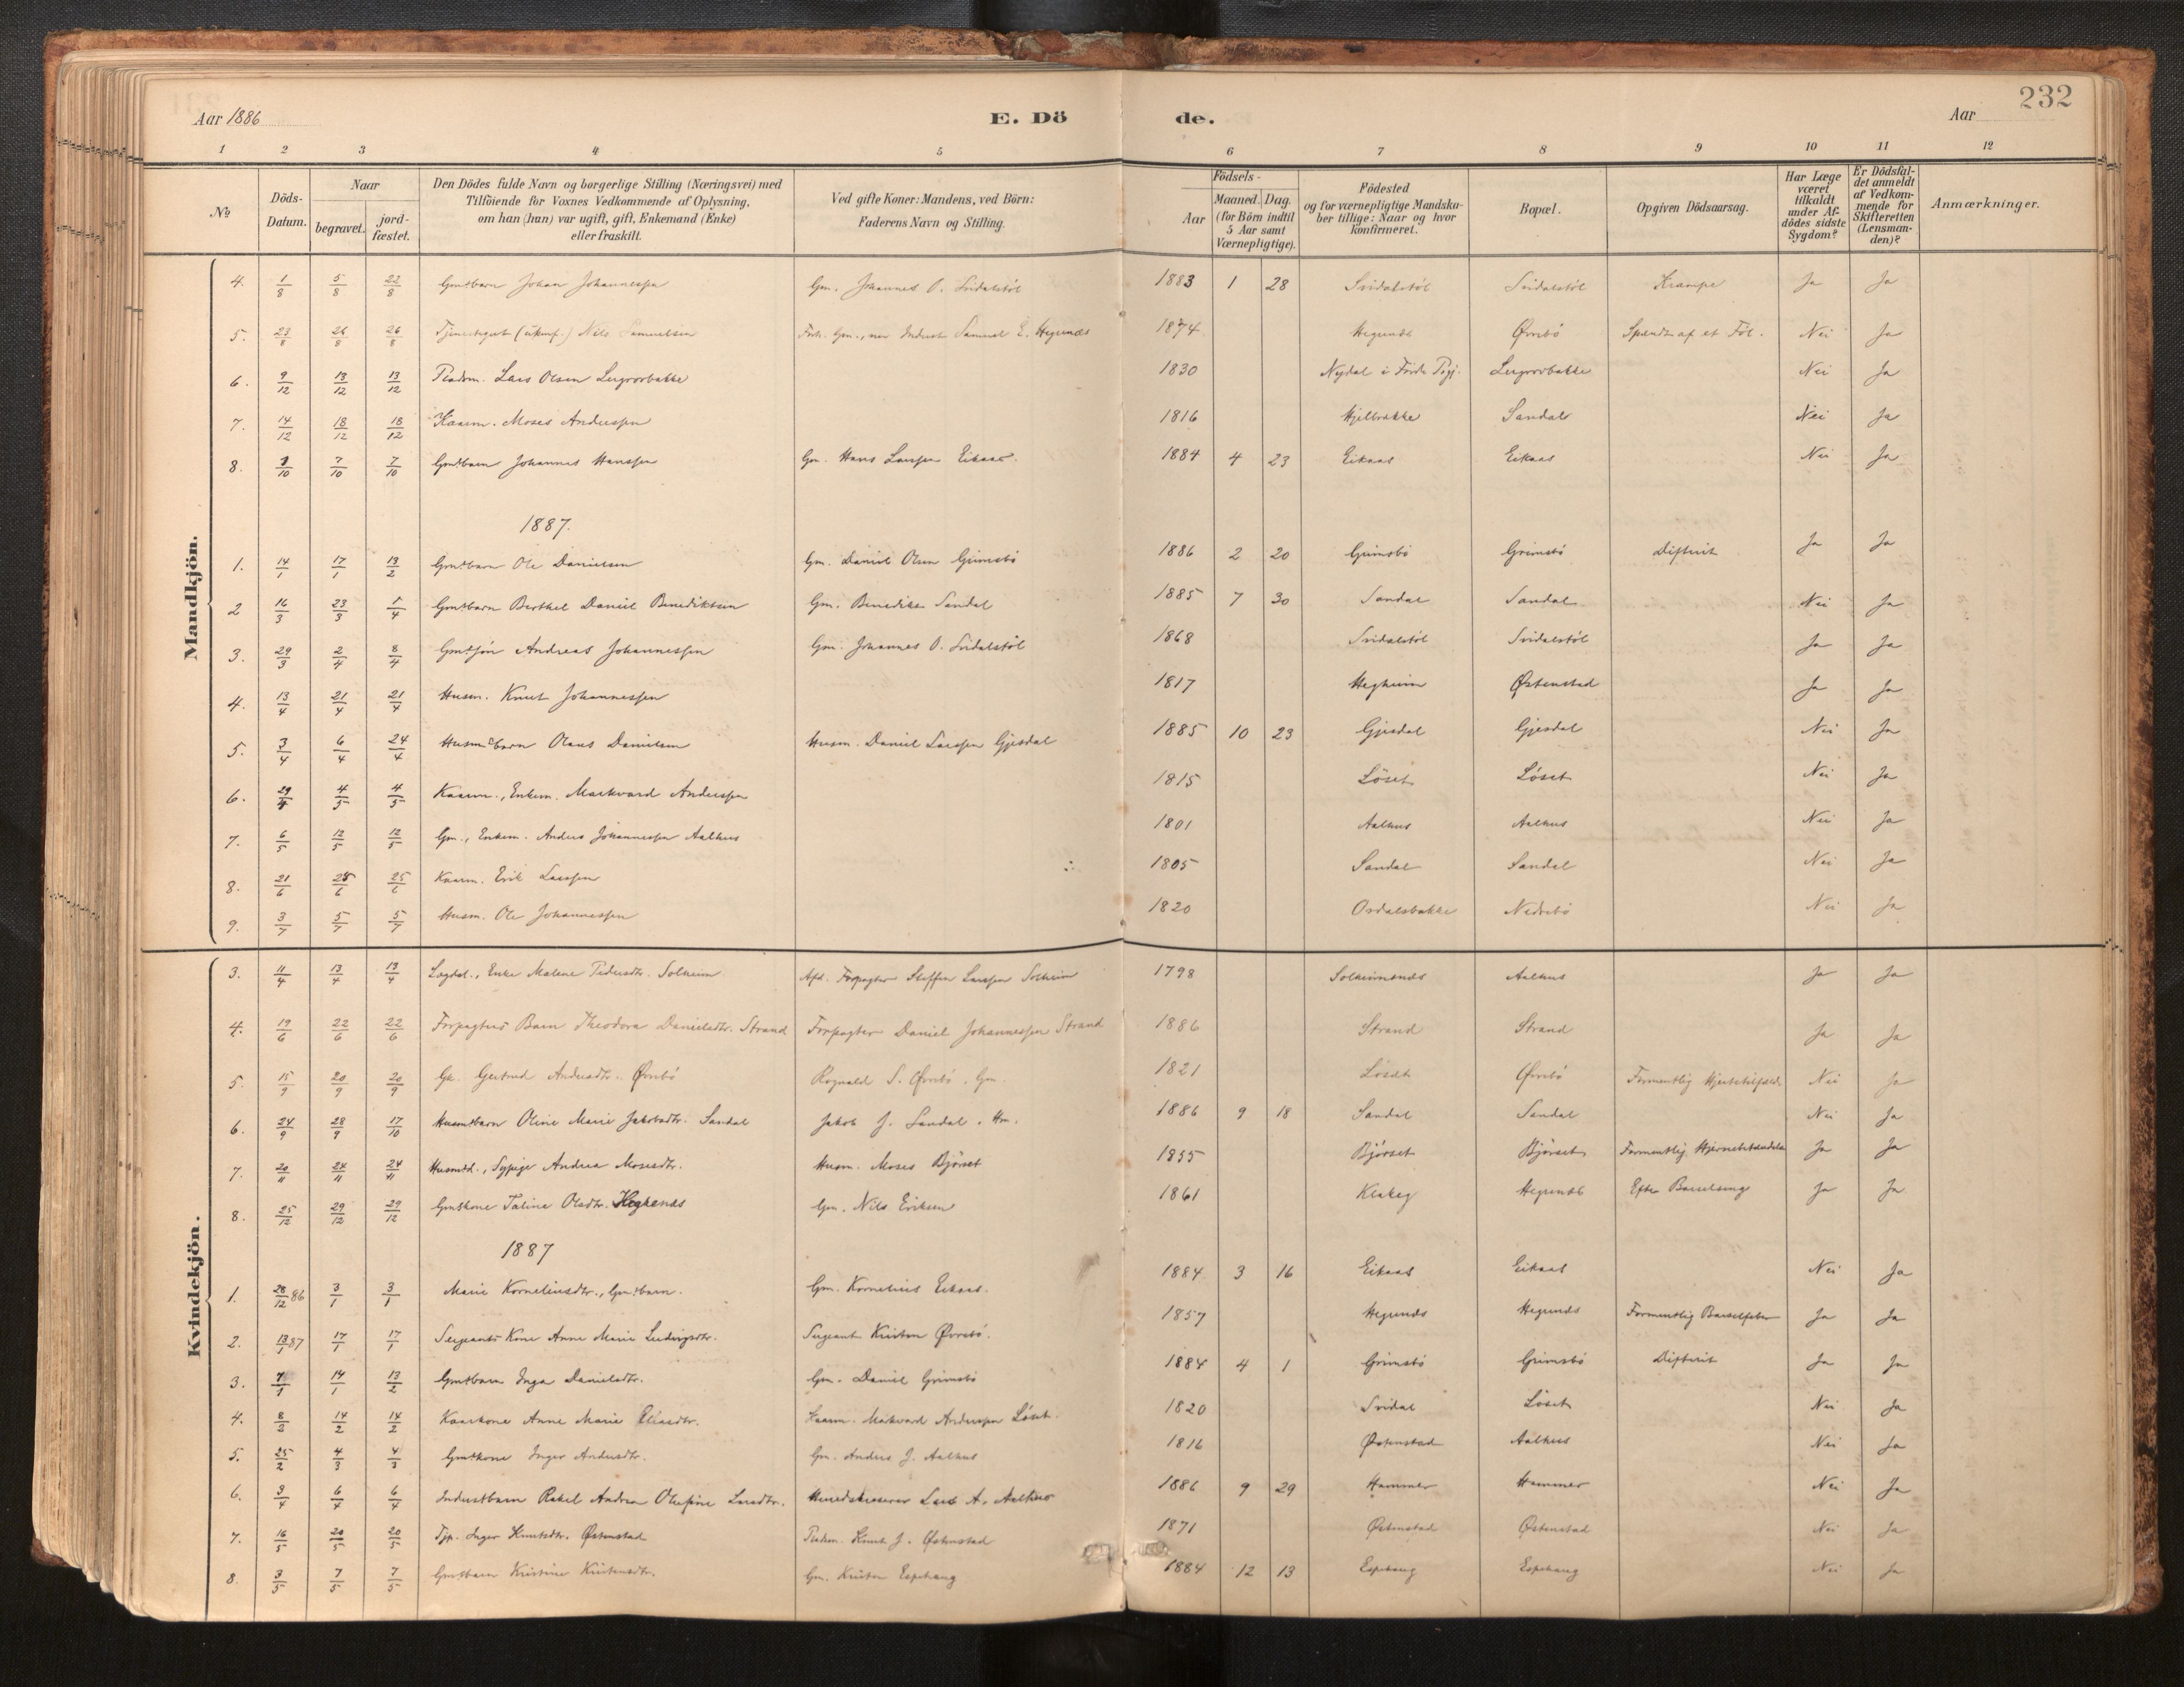 232
Aar 1886
E. Dö
de.
Aar
1 2 3 4 5 6 7 8 9 10 11 12
No
Döds-Datum.
Naar
begravet.
jordfæstet.
Den Dödes fulde Navn og borgerlige Stilling (Næringsvei) med
Tilföiende for Voxnes Vedkommende af Oplysning,
om han (hun) var ugift, gift, Enkemand (Enke)
eller fraskilt.
Ved gifte Koner: Mandens, ved Börn:
Faderens Navn og Stilling.
Födsels-
Aar
Maaned. Dag.
(for Börn indtil
5 Aar samt
Værnepligtige).
Födested
og for værnepligtige Mandskaber tillige: Naar og hvor
konfirmeret.
Bopæl.
Opgiven Dödsaarsag.
Har Læge
været
tilkaldt
under Afdödes sidste
Sygdom?
Er Dödsfaldet anmeldt
af Vedkommende for
Skifteretten
(Lensmanden)?
Anmærkninger.
Mandkjön.
4. 1/8 5/8 22/8 Gmdbarn Johan Johannessen Gm. Johannes O. Svidalstøl 1883 1 28 Svidalstøl Svidalstøl Krampe Ja Ja
5. 23/8 26/8 26/8 Tjenestegut (ukonf.) Nils Samuelsen Forh. Gm., nu Inderst Samuel E. Hegrenæs 1874 Hegrenæs Øvrebö Spændt af et Föl. Nei Ja
6. 9/12 13/12 13/12 Pladsm. Lars Olsen 1830 Nydal i Förde Pgj. Nei Ja
7. 14/12 18/12 18/12 Kaarm. Moses Anderssen 1816 Hjelbrække Sandal Nei Ja
8. 1/10 7/10 7/10 Gmdbarn Johannes Hanssen Gm. Hans Larssen Eikaas. 1884 4 23 Eikaas Eikaas Nei Ja
1887.
1. 14/1 17/1 13/2 Gmdbarn Ole Danielsen Gm. Daniel Olsen Grimsbö 1886 2 20 Grimsbö Grimsbö Difterit Ja Ja
2 16/3 23/3 1/4 Gmdbarn Berthel Daniel Benediktsen Gm. Benedikt Sandal 1885 7 30 Sandal Sandal Nei Ja
3. 29/3 2/4 8/4 Gmdsön Andreas Johannessen Gm. Johannes O. Svidalstøl 1868 Svidalstøl Svidalstøl Ja Ja
4. 13/4 21/4 21/4 Husm. Knut Johannessen 1817 Hegheim Østenstad Ja Ja
5. 3/4 6/4 24/4 Husmdbarn Olaus Danielsen Husm. Daniel Larssen Gjesdal 1885 10 23 Gjesdal Gjesdal Nei Ja
6. 29/4 4/5 4/5 Kaarm., Enkem. Markvard Anderssen 1815 Löset Löset Nei Ja
7. 6/5 12/5 12/5 Gm., Enkem. Anders Johannessen Aalhus 1801 Aalhus Aalhus Nei Ja
8. 21/6 25/6 25/6 Kaarm. Erik Larssen 1805 Sandal Sandal Nei Ja
9. 3/7 5/7 5/7 Husm. Ole Johannessen 1820 Osdalsbakke Nedrebö Nei Ja
Kvindekjön.
3. 11/4 13/4 13/4 Lægdsl., Enke Malene Pedersdtr. Solheim Afd. Forpagter Steffen Larssen Solheim 1798 Solheimsnæs Aalhus Ja Ja
4. 19/6 22/6 22/6 Forpagters Barn Theodora Danielsdtr. Strand Forpagter Daniel Johannessen Strand 1886 Strand Strand Ja Ja
5. 15/9 20/9 20/9 Gk. Gertrud Andersdtr. Øvrebö Rognald S. Øvrebö, Gm. 1821 Löset Øvrebö Formentlig Hjertetilfælde Nei Ja
6. 24/9 28/9 17/10 Husmdbarn Oline Marie Jakobsdtr. Sandal Jakob J. Sandal, Hm. 1886 9 18 Sandal Sandal Nei Ja
7. 20/11 24/11 24/11 Husmdd., Sypige Andrea Mosesdtr. Husm. Moses Bjørset 1855 Bjørset Bjørset Formentlig Ja Ja
8. 25/12 29/12 29/12 Gmdskone Taline Olsdtr. Hegrenæs Gm. Nils Eriksen 1861 Klakeg Hegrenæs Efter Barselseng Ja Ja
1887
1. 28/12 86 3/1 3/1 Marie Korneliusdtr., Gmdbarn. Gm. Kornelius Eikaas. 1884 3 16 Eikaas Eikaas Nei Ja
2. 13/1 87 17/1 17/1 Sergeants Kone Anne Marie Ludvigsdtr. Sergeant Kristen Øvrebö. 1857 Hegrenæs Hegrenæs Formentlig Barselfeber Ja Ja
3. 7/1 14/1 13/2 Gmdbarn Inga Danielsdtr. Gm. Daniel Grimsbö 1884 4 1 Grimsbö Grimsbö Difterit Ja Ja
4. 8/2 14/2 14/2 Kaarkone Anne Marie Eliasdtr. Kaarm. Makvard Anderssen Löset. 1820 Svidal Löset Nei Ja
5. 25/2 4/3 4/3 Gmdkone Inger Andersdtr. Gm. Anders J. Aalhus 1816 Østenstad Aalhus Nei Ja
6. 3/4 6/4 6/4 Inderstbarn Rakel Andrea Olufine Larsdtr. Lars A. Aalhus 1886 9 29 Hammer Hammer Nei Ja
7. 16/5 20/5 20/5 Tjp. Inger Knutsdtr. Østenstad Pladsm. Knut J. Østenstad 1871 Østenstad Østenstad Nei Ja
8. 3/5 7/5 7/5 Gmdbarn Kristine Kristensdtr. Gm. Kristen Espehaug 1884 12 13 Espehaug Espehaug Nei Ja